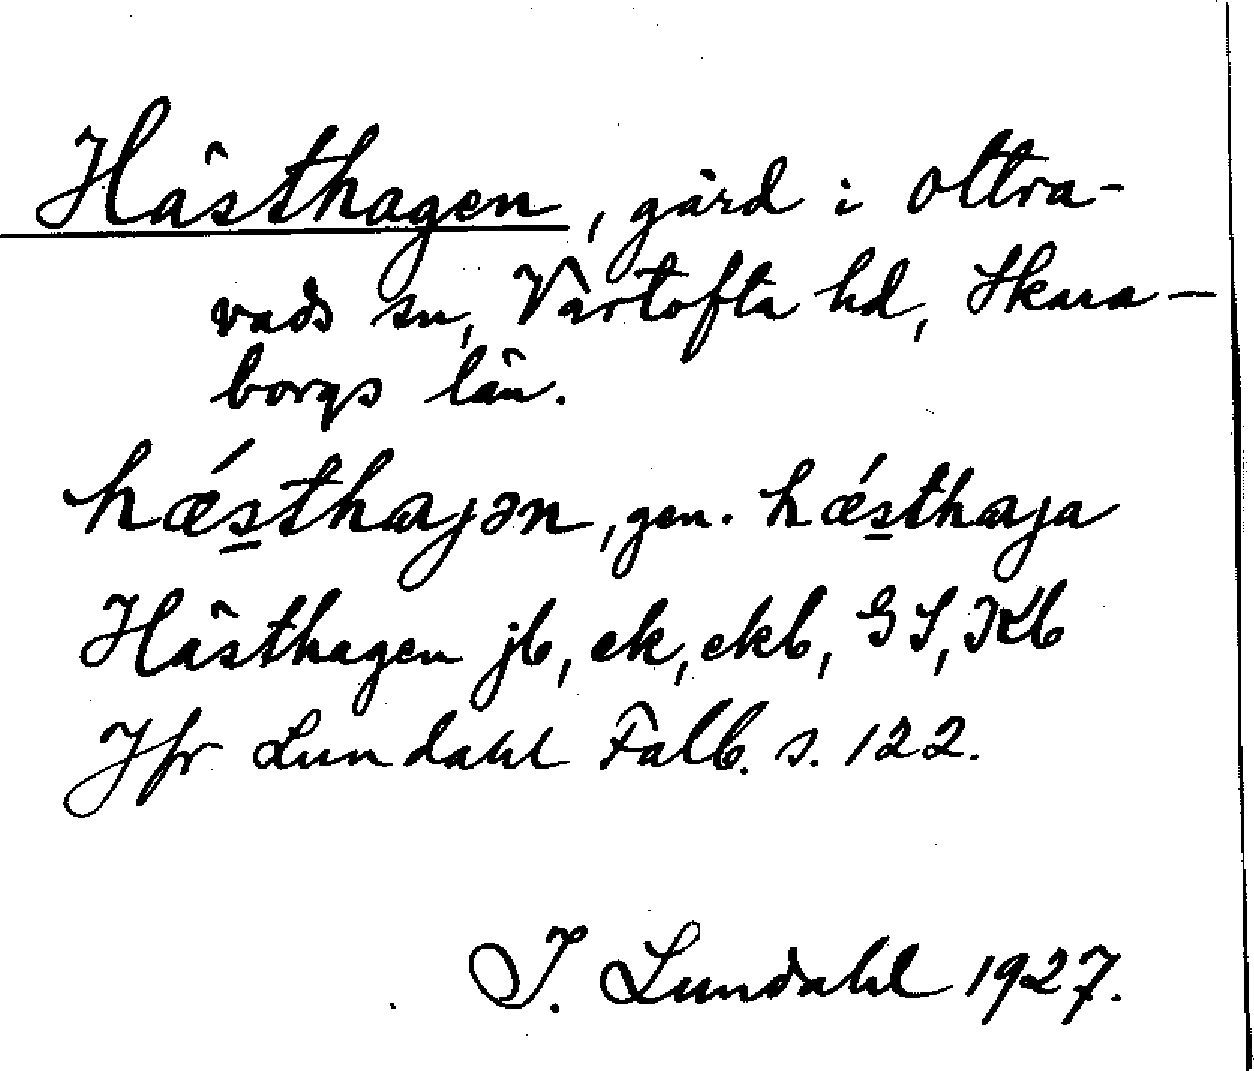 Hästhagen, gård i Ottra-
vads sn, Vartofta hd, Skara-
borgs län.
hǽsthaȷən, gen. hǽsthaȷa
Hästhagen jb, ek, ekb, GS, Kb
Jfr Lundahl Falb. s. 122.
I. Lundahl 1927.